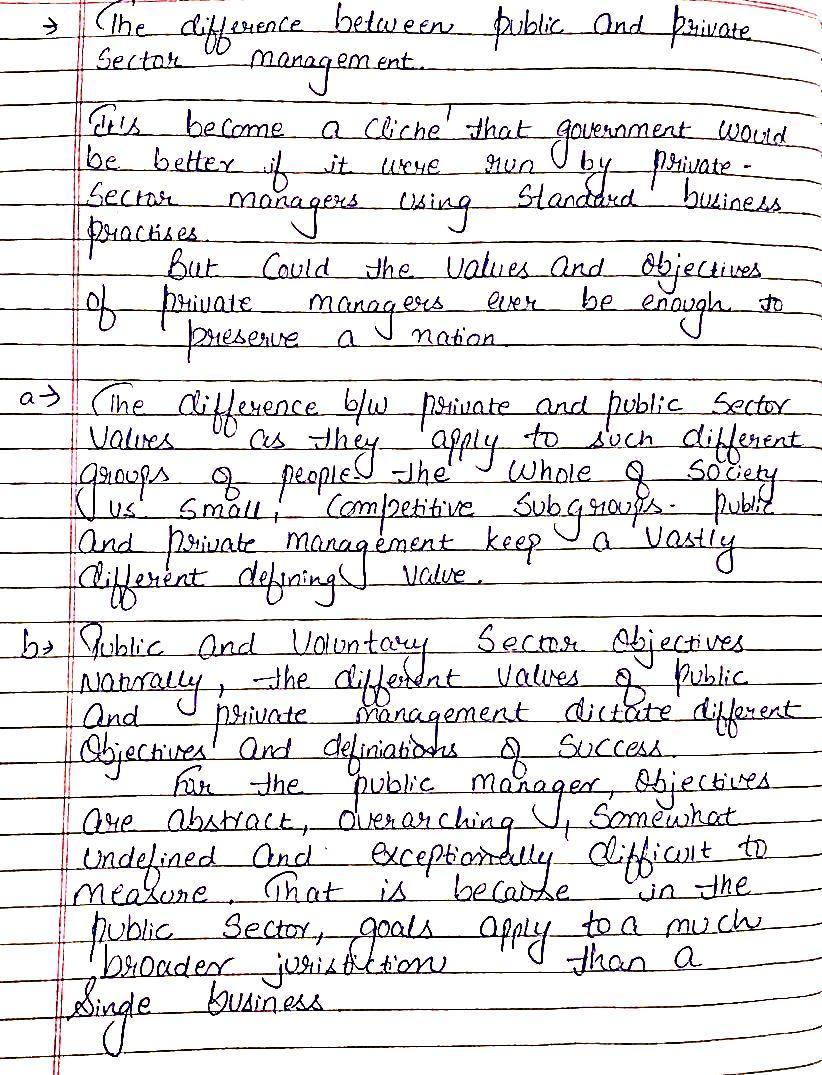 → The difference between public and private
Sector management.
It's become a cliche' that government would
be better if it were run by private-
Sector managers using Standard business
practises.
But Could the Values and Objectives
of private managers ever be enough to
preserve a nation
a→ The difference b/w private and public Sector
Values as they apply to such different
groups of people the Whole of Society
us Small, Competitive Subgroups. public
and private management keep a vastly
different defining value.
b→ Public and Voluntary Sector Objectives
Naturally, the different values of public
and private management dictate different
Objectives and definiations of Success.
For the public manager, Objectives
are abstract, Overarching, Somewhat
undefined and exceptionally difficult to
measure. That is because in the
public Sector, goals apply to a much
broader jurisdiction than a
Single business